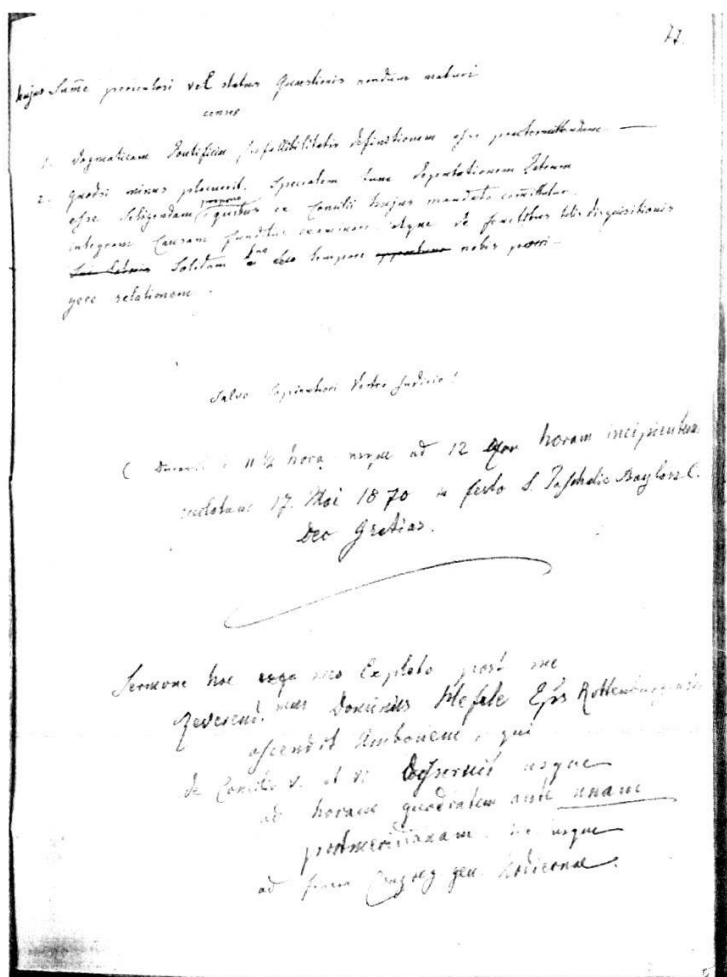 77.
hujus Summe periculosi vel status Quaestionis nondum maturi
censeo
1. Dogmaticam Pontificiae Infallibilitatis definitionem esse praetermittendam. —
2. Quodsi minus placuerit. Specialem tunc Deputationem Patrum
esse seligendam, quibus ex Concilii hujus mandato committatur
integram Causam funditus examinare, atque de fructibus talis disquisitionis
solidam suo tempore nobis
relationem.
Salvo Sapientiori Vestro Judicio!
( 11 1/2 hora usque ad 12 horam incipientem
17. Mai 1870 in festo S. Paschalis Baylon C.
Deo Gratias.
Sermone hoc meo Expleto post me
Reverend.mus Dominus Hefele Eps Rottenburgensis
ascendit Ambonem, qui
de Concilio V. et VI. disseruit usque
ad horam quadrantem ante unam
postmeridianam. usque
ad finem Congreg gen. hodiernae.